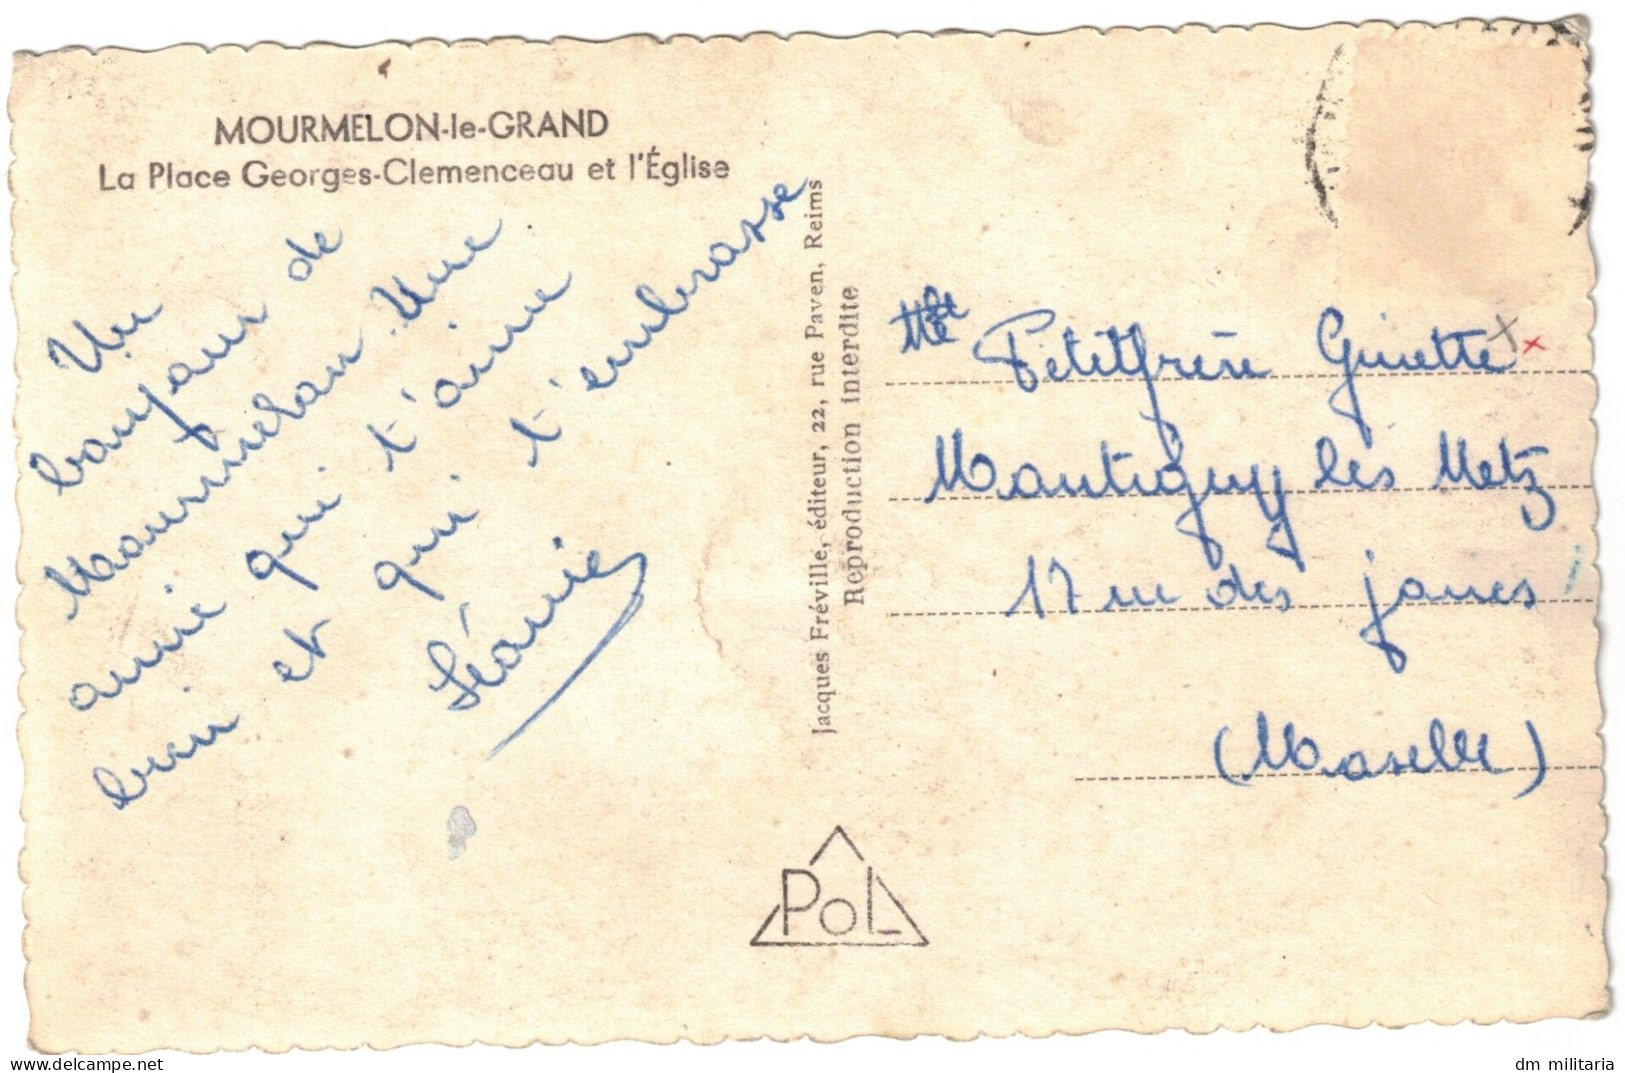 MOURMELON-le-GRAND
La Place Georges-Clemenceau et l'Église
Un
bonjour de
Mourmelon. Une
amie qui t'aime
bien et qui t'embrasse
Léonie
Jacques Fréville, éditeur, 22, rue Paven, Reims
Reproduction interdite
Petitfrère Ginette
Montigny les Metz
17 rue des
(Moselle)
PoL
delcampe.net
dm_militaria